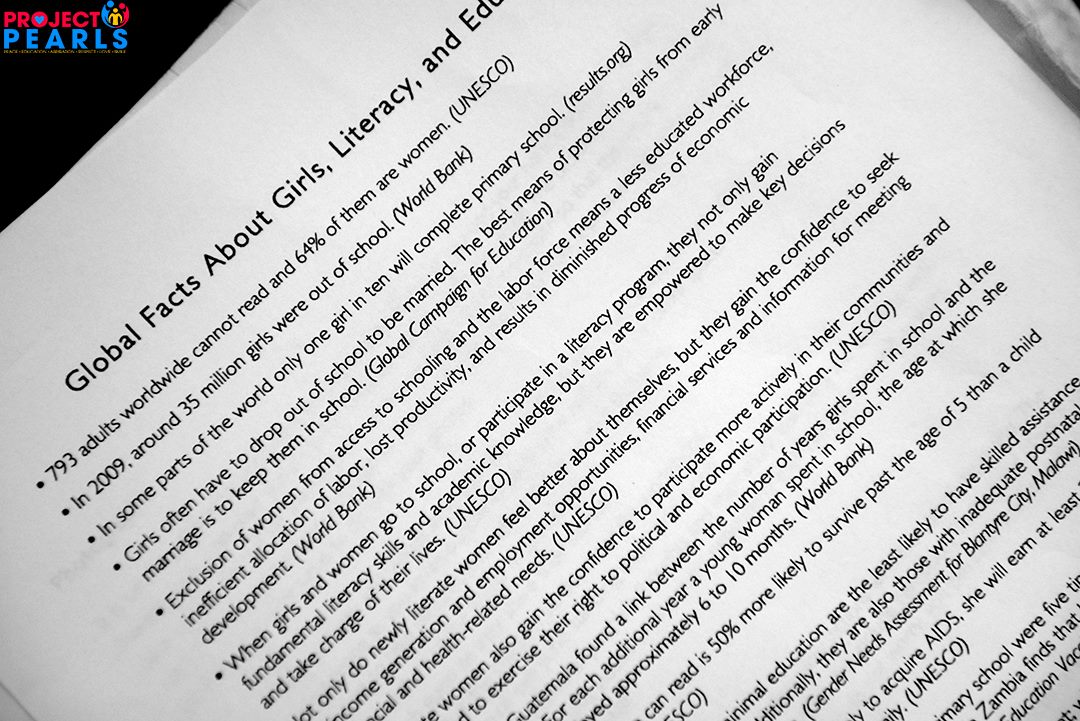 PROJECT
PEARLS
PEACE • EDUCATION • ASPIRATION • RESPECT • LOVE • SMILE
Global Facts About Girls, Literacy, and Edu
• 793 adults worldwide cannot read and 64% of them are women. (UNESCO)
• In 2009, around 35 million girls were out of school. (World Bank)
• In some parts of the world only one girl in ten will complete primary school. (results.org)
• Girls often have to drop out of school to be married. The best means of protecting girls from early
marriage is to keep them in school. (Global Campaign for Education)
• Exclusion of women from access to schooling and the labor force means a less educated workforce,
inefficient allocation of labor, lost productivity, and results in diminished progress of economic
development. (World Bank)
• When girls and women go to school, or participate in a literacy program, they not only gain
fundamental literacy skills and academic knowledge, but they are empowered to make key decisions
and take charge of their lives. (UNESCO)
ot only do newly literate women feel better about themselves, but they gain the confidence to seek
ncome generation and employment opportunities, financial services and information for meeting
cial and health-related needs. (UNESCO)
te women also gain the confidence to participate more actively in their communities and
d to exercise their right to political and economic participation. (UNESCO)
Guatemala found a link between the number of years girls spent in school and the
For each additional year a young woman spent in school, the age at which she
yed approximately 6 to 10 months. (World Bank)
can read is 50% more likely to survive past the age of 5 than a child
SCO)
nimal education are the least likely to have skilled assistance
ditionally, they are also those with inadequate postnatal
(Gender Needs Assessment for Blantyre City, Malawi)
ly to acquire AIDS, she will earn at least
ly. (UNESCO)
mary school were five tim
Zambia finds that
ducation Vacc